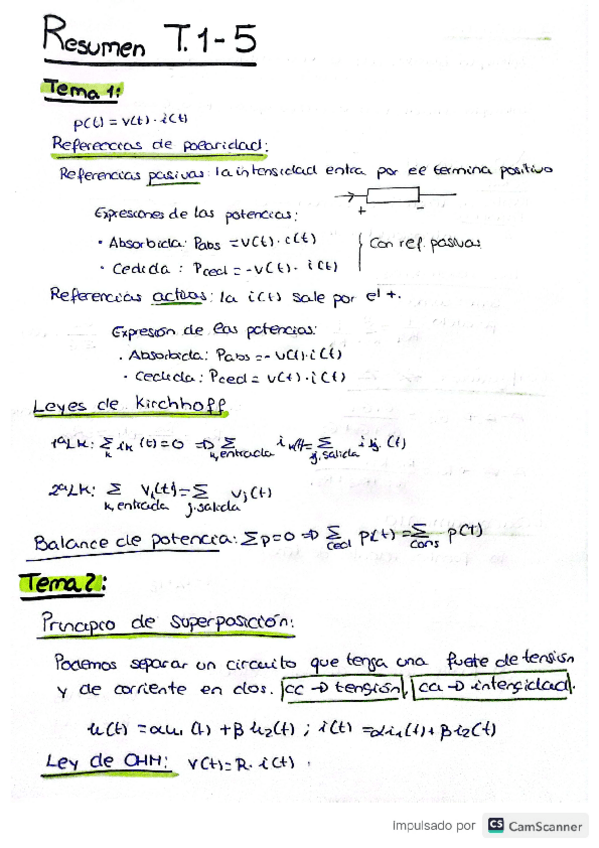 Resumen T.1-5
Tema 1:
p(t) = v(t) · i(t)
Referencias de polaridad:
Referencias pasivas: la intensidad entra por el termina positivo
+ -
Expresiones de las potencias:
• Absorbida: Pabs = v(t) · i(t)
• Cedida : Pced = -v(t) · i(t)
Con ref. pasivas
Referencias activas: la i(t) sale por el +.
Expresión de las potencias:
• Absorbida: Pabs = - v(t) · i(t)
• Cedida: Pced = v(t) · i(t)
Leyes de Kirchhoff
1ªLK: Σ_k i_k (t) = 0 ⇒ Σ_k,entrada i_k(t) = Σ_j,salida i_j (t)
2ªLK: Σ_k,entrada v_k(t) = Σ_j,salida v_j(t)
Balance de potencia: Σp=0 ⇒ Σ_ced p(t) = Σ_cons p(t)
Tema 2:
Principio de superposición:
Podemos separar un circuito que tenga una fuete de tensión
y de corriente en dos. cc → tensión, ca → intensidad.
u(t) = αu₁(t) + βu₂(t) ; i(t) = αi₁(t) + βi₂(t)
Ley de OHM: v(t) = R · i(t) .
Impulsado por CS CamScanner